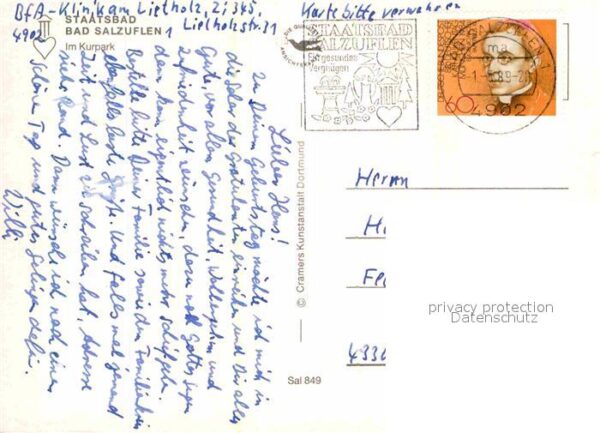 BfA-Klinik am Lietholz, Zi 345,
4902 Lietholzstr. 11
STAATSBAD
BAD SALZUFLEN 1
Im Kurpark
Karte bitte verwahren
STAATSBAD
SALZUFLEN
Ein gesundes
Vergnügen
BAD SALZUFLEN 1
ma
4902
60
Lieber Hans!
Zu Deinem Geburtstag möchte ich mich in
die Schar der Gratulanten einreihen und Dir alles
Gute, vor allem Gesundheit, Wohlergehen und
Zufriedenheit wünschen, denn mit Gottes Segen
dann kann eigentlich nichts mehr schiefgehen.
Bestelle bitte Deiner Familie sowie den
ebenfalls beste Grüße. Und falls mal jemand
Zeit und Lust zu Schreiben hat, Adresse
siehe Rand. Dann wünsche ich noch einen
schönen Tag und gutes Gelingen dafür.
Willi
© Cramers Kunstanstalt Dortmund
Sal 849
Herrn
H
F
433
privacy protection
Datenschutz